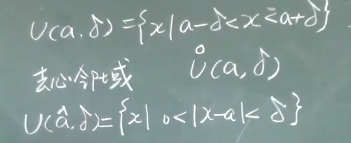 U(a,δ)={x|a-δ<x<a+δ}
去心邻域 Ů(a,δ)
U(â,δ)={x| 0<|x-a|<δ}